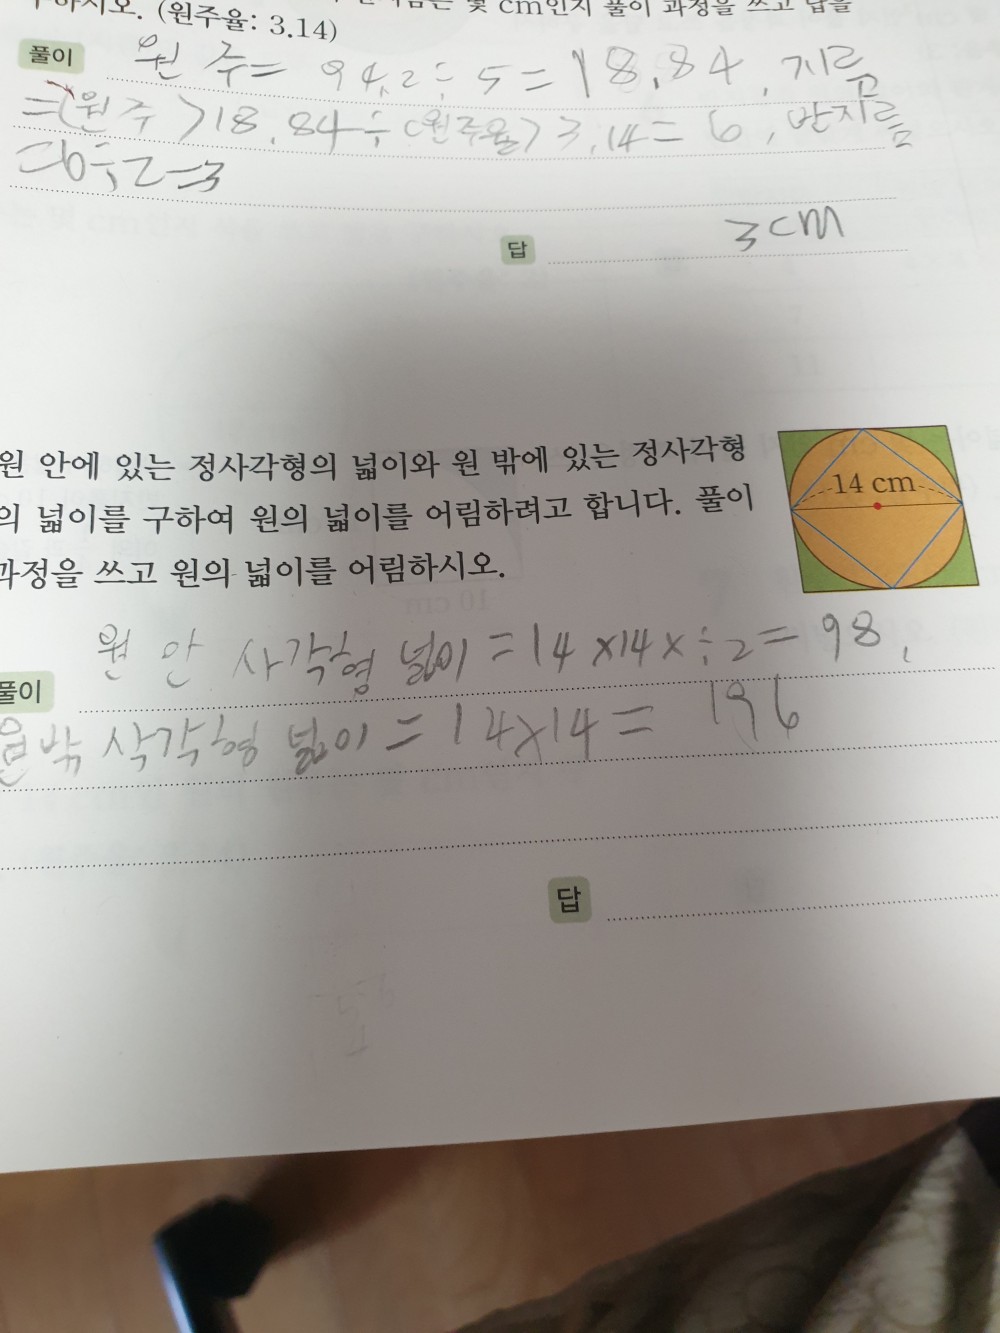 하시오. (원주율: 3.14)
cm인지 풀이 과정을 쓰고 답을
풀이 원 주 = 94.2÷5=18.84, 지름
=(원주)18.84÷(원주율)3.14=6, 반지름
=6÷2=3
답 3cm
원 안에 있는 정사각형의 넓이와 원 밖에 있는 정사각형
의 넓이를 구하여 원의 넓이를 어림하려고 합니다. 풀이
과정을 쓰고 원의 넓이를 어림하시오.
14 cm
풀이 원 안 사각형 넓이=14×14×÷2=98,
밖 삭각형 넓이=14×14=196
답